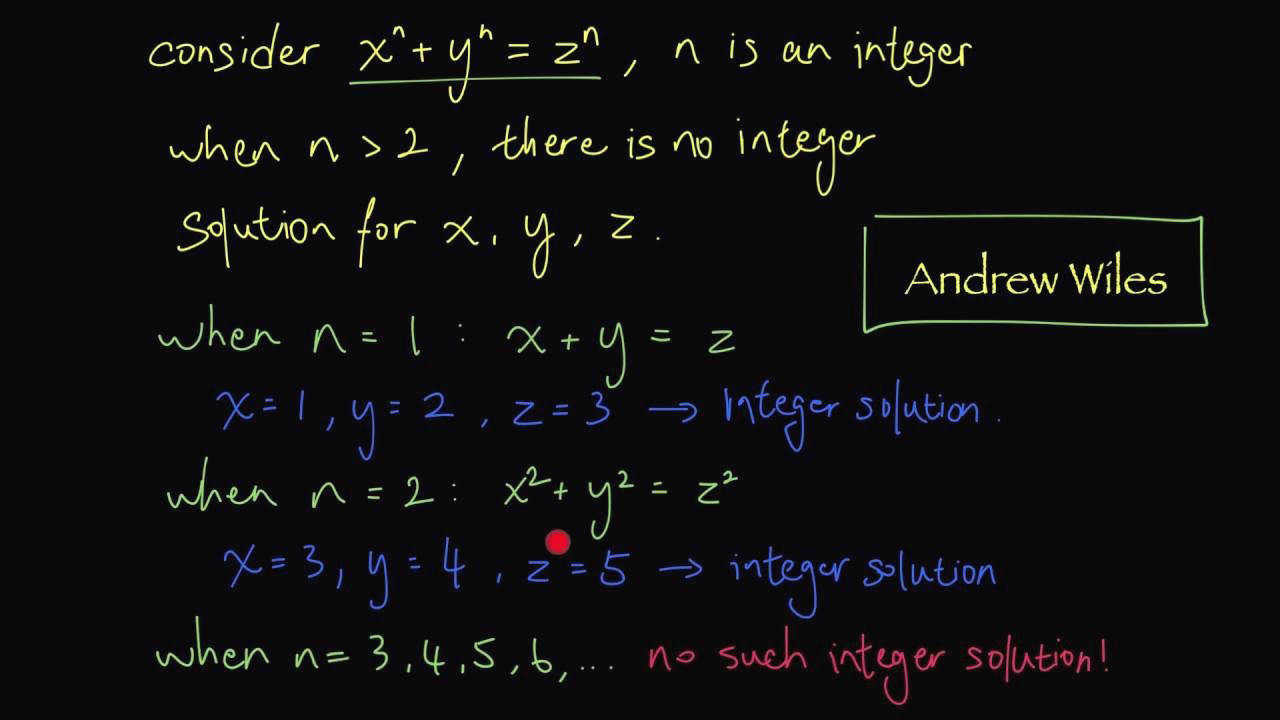 consider xⁿ + yⁿ = zⁿ, n is an integer
when n > 2, there is no integer
solution for x, y, z.
Andrew Wiles
when n = 1 : x + y = z
x = 1, y = 2, z = 3 → Integer solution.
when n = 2 : x² + y² = z²
x = 3, y = 4, z = 5 → integer solution
when n = 3, 4, 5, 6, ... no such integer solution!